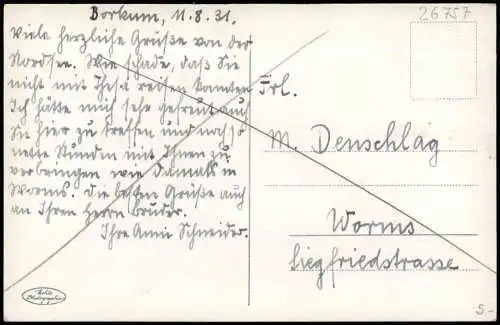 Borkum, 11.8.31.
26757
Viele herzliche Grüße von der
Nordsee. Wie schade, daß Sie
nicht mit Thesa reisen konnten
Ich hätte mich sehr gefreut auch
Sie hier zu treffen und
nette Stunden mit Ihnen zu
verbringen wie damals in
Worms. Die besten Grüße auch
an Ihren Herrn Bruder.
Ihre Annie Schneider.
Frl.
M. Denschlag
Worms
Siegfriedstrasse
5.-